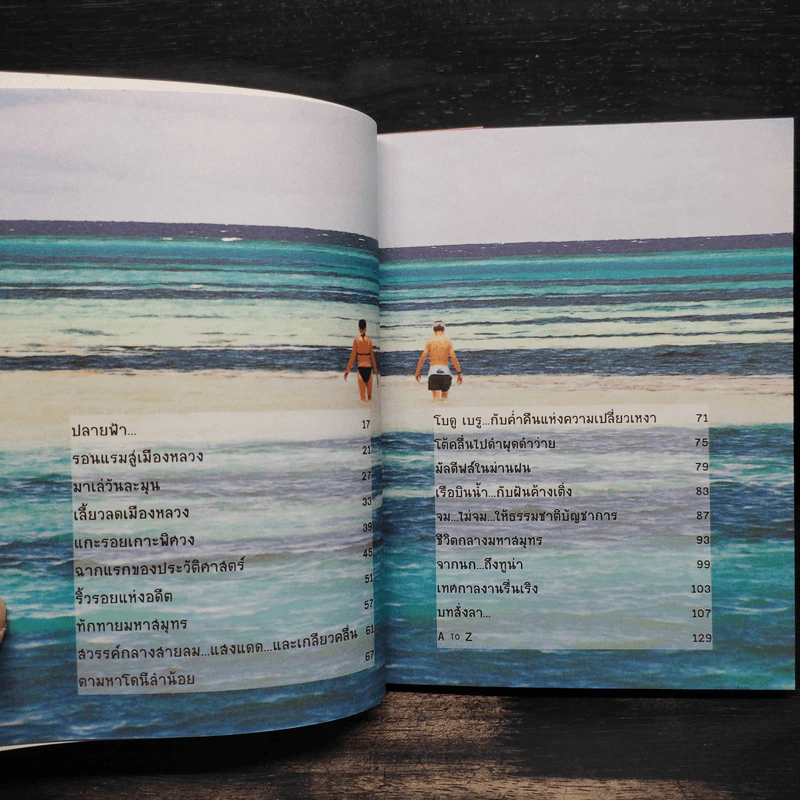 ปลายฟ้า... 17
รอนแรมสู่เมืองหลวง 21
มาเล่วันละมุน 27
เลี้ยวลดเมืองหลวง 33
แกะรอยเกาะพิศวง 39
ฉากแรกของประวัติศาสตร์ 45
ริ้วรอยแห่งอดีต 51
ทักทายมหาสมุทร 57
สวรรค์กลางสายลม...แสงแดด...และเกลียวคลื่น 61
ตามหาโดนีลำน้อย 67
โบดู เบรู...กับค่ำคืนแห่งความเปลี่ยวเหงา 71
โต้คลื่นไปดำผุดดำว่าย 75
มัลดีฟส์ในม่านฝน 79
เรือบินน้ำ...กับฝันค้างเติ่ง 83
จม...ไม่จม...ให้ธรรมชาติบัญชาการ 87
ชีวิตกลางมหาสมุทร 93
จากนก...ถึงทูน่า 99
เทศกาลงานรื่นเริง 103
บทสั่งลา... 107
A TO Z 129